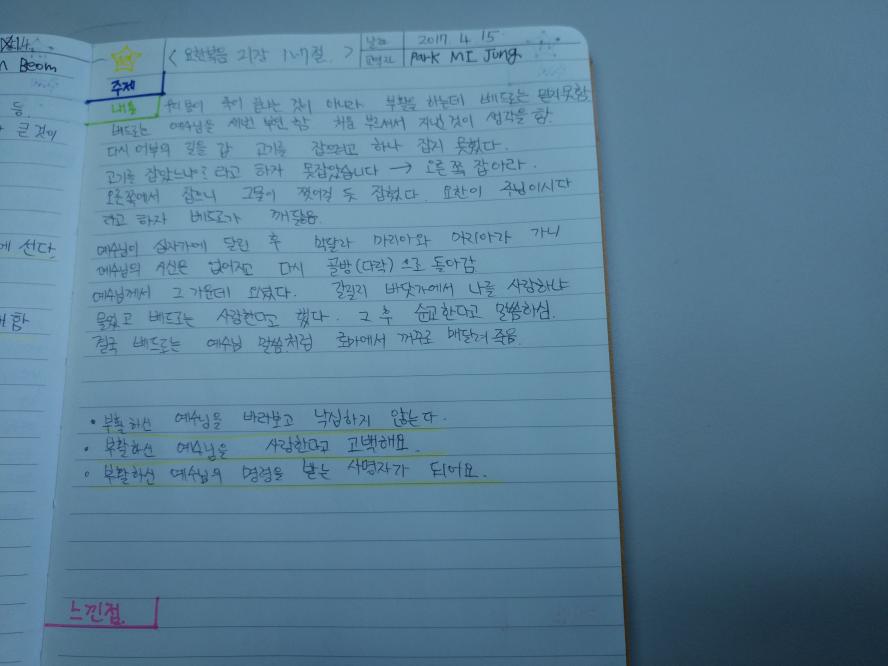 14.
Beom
등.
큰 것이
에 선다.
함
< 요한복음 21장 1-17절. >
날짜 2017. 4. 15
Park MI Jung
주제
내용 죽이 끝나는 것이 아니라 부활을 하는데 베드로는 믿지못함
베드로는 예수님을 세번 부인함 처음 지낸것이 생각을 함.
다시 어부의 일을 감 고기를 잡으려고 하나 잡지 못했다.
고기를 잡았느냐? 라고 하자 못잡았습니다 → 오른쪽 잡아라.
오른쪽에서 잡으니 그물이 찢어질 듯 잡혔다. 요한이 주님이시다
라고 하자 베드로가 깨달음.
예수님이 십자가에 달린 후 막달라 마리아와 가니
예수님의 시신은 없어지고 다시 골방(다락)으로 돌아감
예수님께서 그 가운데 오셨다. 갈릴리 바닷가에서 나를 사랑하냐
물었고 베드로는 사랑한다고 했다. 그 후 순교한다고 말씀하심.
결국 베드로는 예수님 말씀처럼 로마에서 거꾸로 매달려 죽음.
• 부활하신 예수님을 바라보고 낙심하지 않는다.
• 부활하신 예수님을 사랑한다고 고백해요.
• 부활하신 예수님의 명령을 받는 사명자가 되어요.
느낀점.